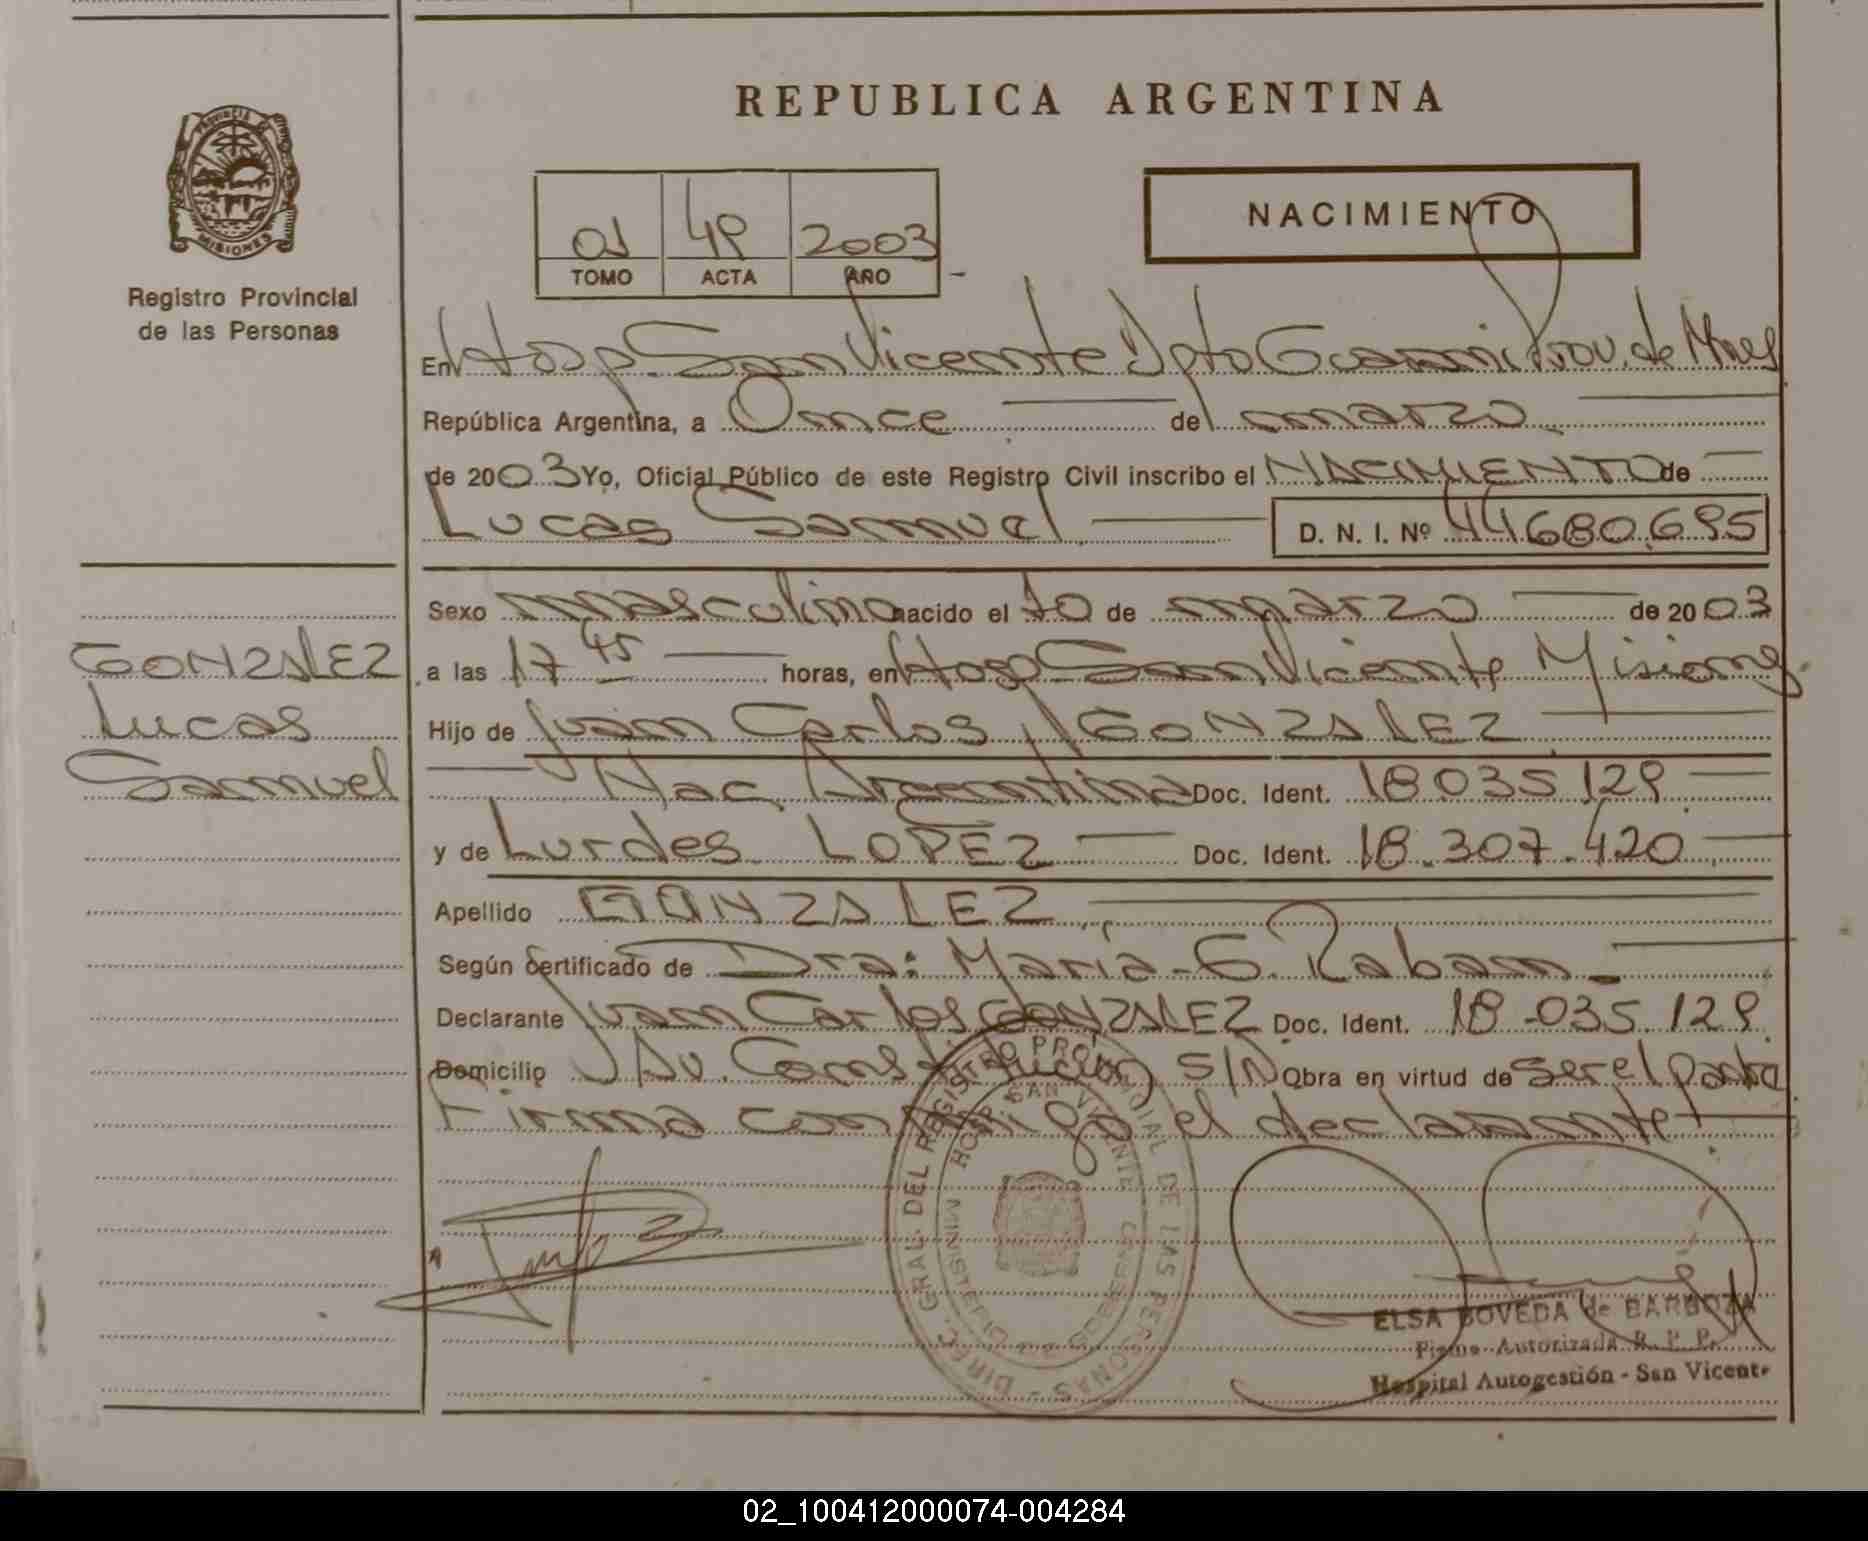 REPUBLICA ARGENTINA
PROVINCIA DE
MISIONES
Registro Provincial
de las Personas
01 49 2003
TOMO ACTA AÑO
NACIMIENTO
En Hosp. San Vicente Dpto Guarani Prov. de Mnes
República Argentina, a Once de marzo
de 2003 Yo, Oficial Público de este Registro Civil inscribo el NACIMIENTO de
Lucas Samuel D. N. I. Nº 44680.695
GONZALEZ
Lucas
Samuel
Sexo masculino nacido el 10 de marzo de 2003
a las 17 45 horas, en Hosp San Vicente Misiones
Hijo de Juan Carlos GONZALEZ
Nac. Argentina Doc. Ident. 18.035.129
y de Lurdes LOPEZ Doc. Ident. 18.307.420
Apellido GONZALEZ
Según certificado de Dra: Maria G. Raban
Declarante Juan Carlos GONZALEZ Doc. Ident. 18-035.129
Domicilio Av. Constitucion S/N Obra en virtud de ser el padre
Firma conmigo el declarante
DIREC. GRAL. DEL REGISTRO PROVINCIAL DE LAS PERSONAS
HOSP. SAN VICENTE
ELSA BOVEDA de BARBOZA
Firma Autorizada R. P. P.
Hospital Autogestión - San Vicente
02_100412000074-004284